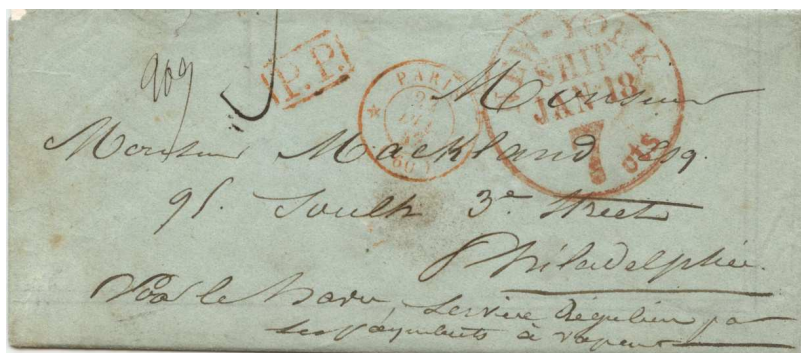 P.P.
PARIS
(60)
NEW-YORK
SHIP
JAN 18
7
cts
Monsieur
Monsieur Mackland Esq.
95. South 3e Street
Philadelphie.
Par le Havre, Service Régulier par
les paquebots à vapeur